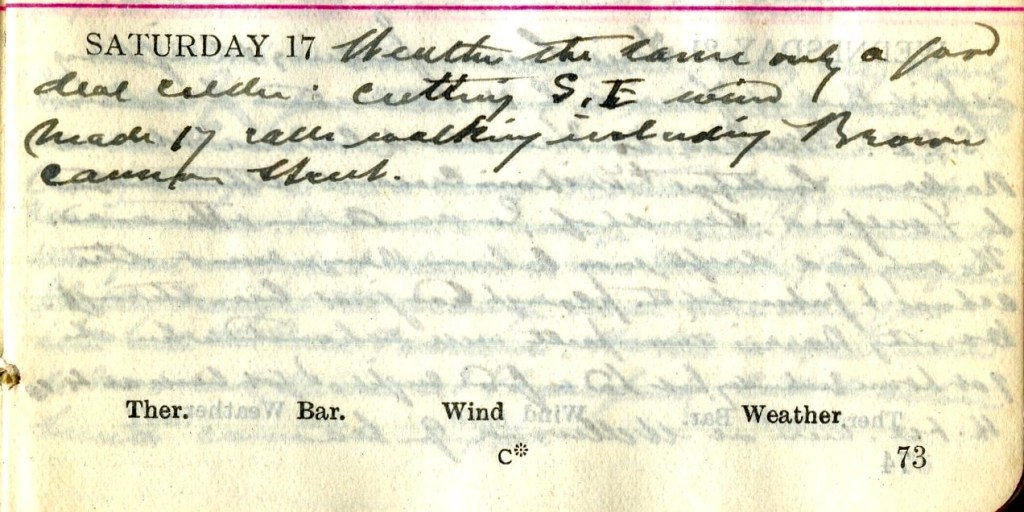 SATURDAY 17 Weather the same only a good
deal colder: cutting S, E wind
Made 17 calls walking including Brown
Cannon Street.
Ther. Bar. Wind Weather
C* 73